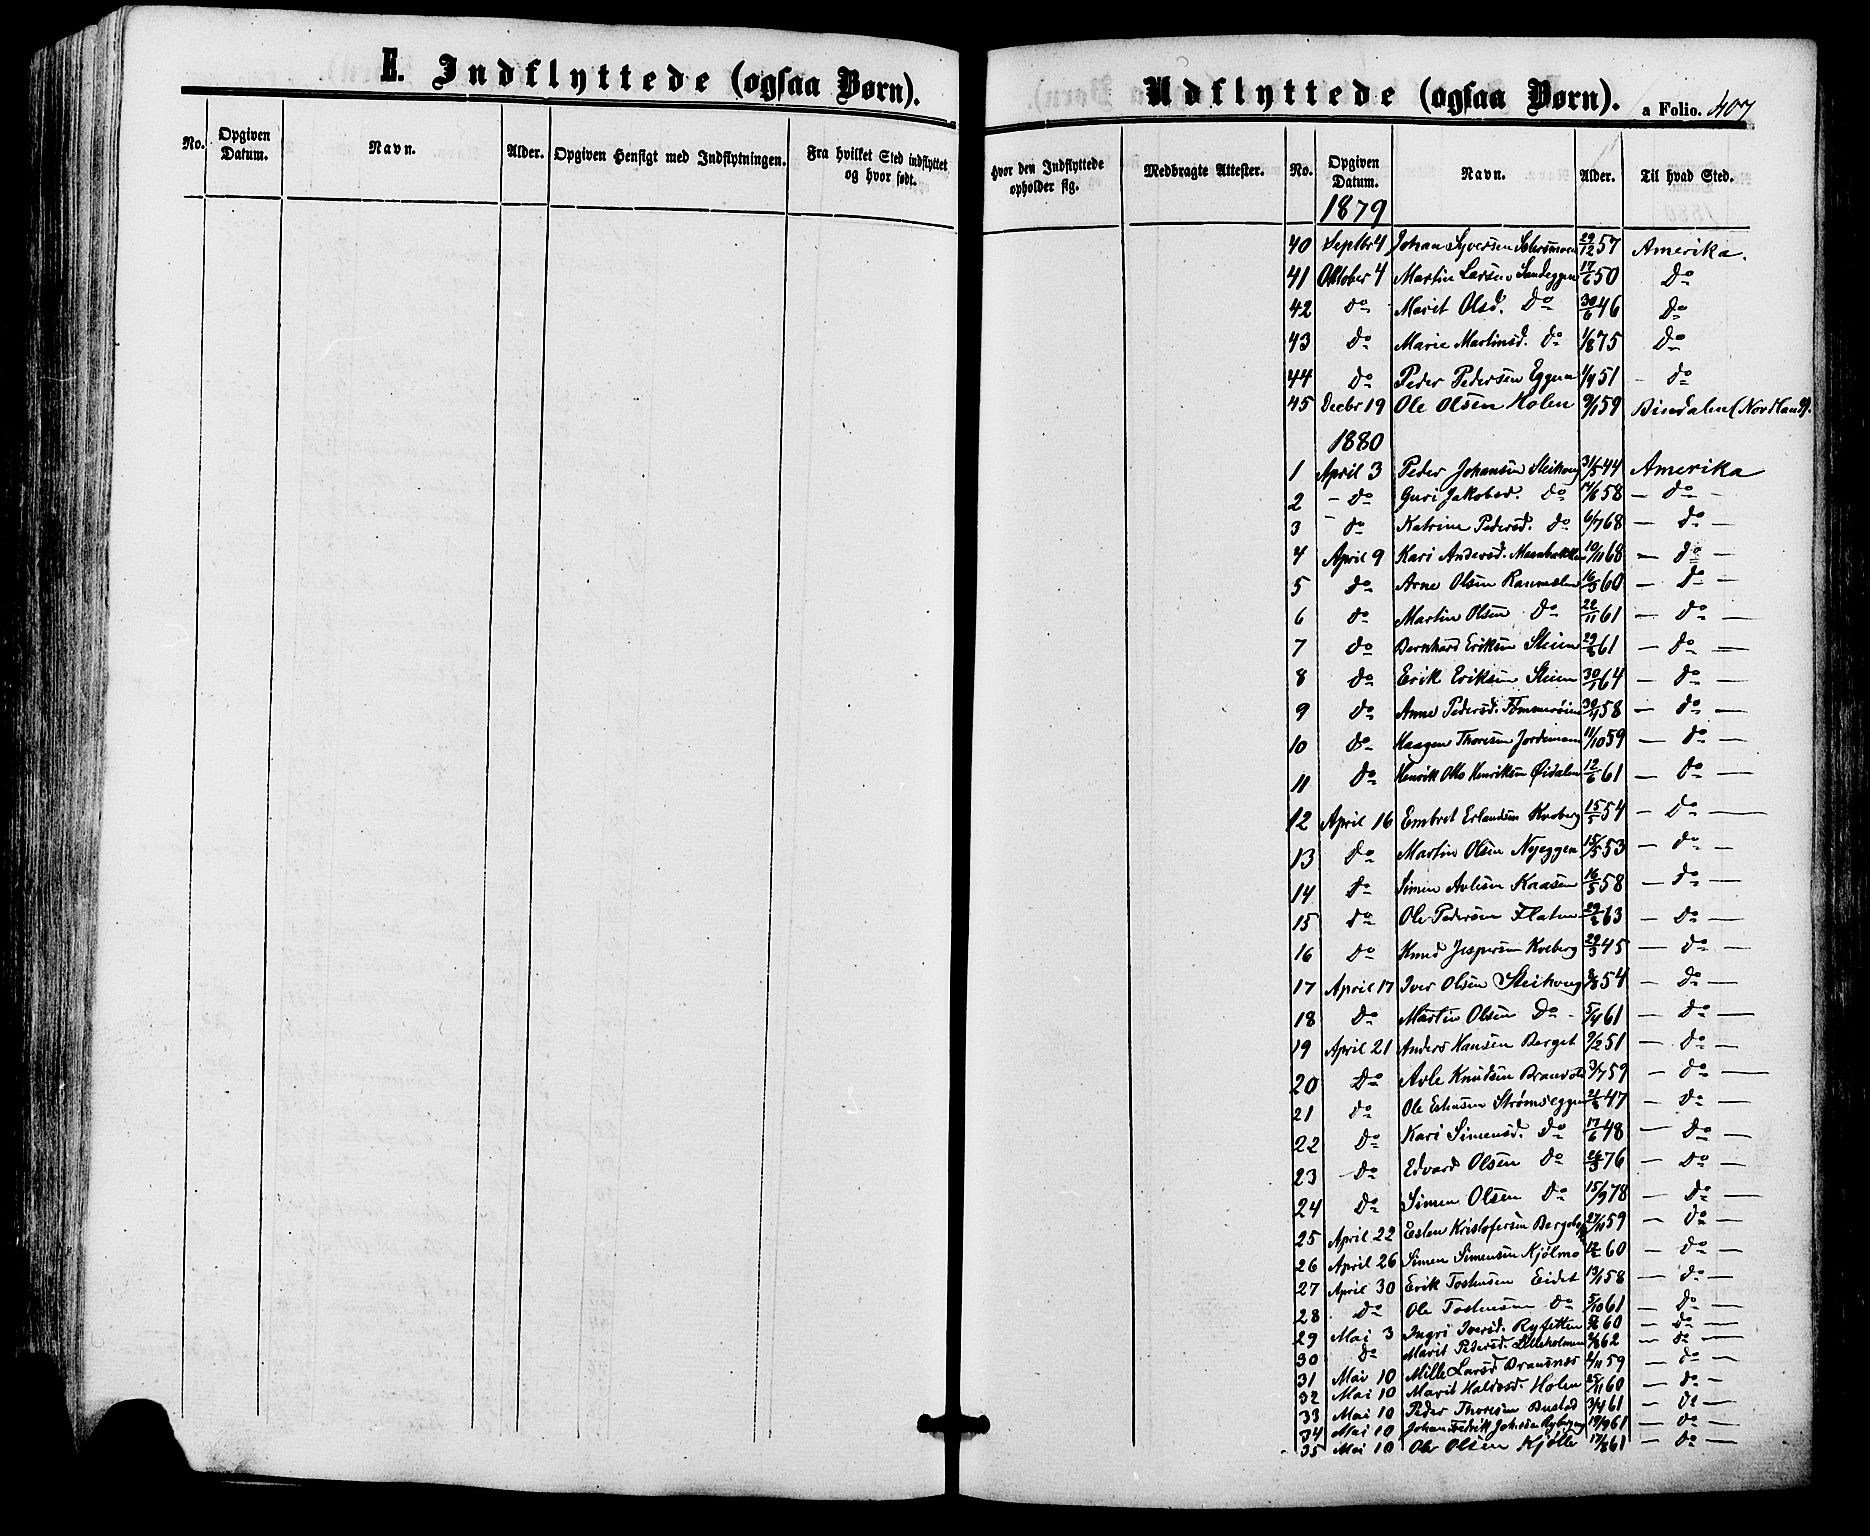 E. Indflyttede (ogsaa Børn).
No. Opgiven Datum. Navn. Alder. Opgiven Hensigt med Indflytningen. Fra hvilket Sted indflyttet og hvor født.
Udflyttede (ogsaa Børn). a Folio. 407
Hvor den Indflyttede opholder sig. Medbragte Attester. No. Opgiven Datum. Navn. Alder. Til hvad Sted.
1879
40 Septbr 4 Johan Syversen 29/12 57 Amerika.
41 Oktober 4 Martin Larsen Sandeggen 17/6 50 Do
42 do Marit Olsd. Do 30/6 46 Do
43 do Marie Martinsd. do 1/8 75 Do
44 do Peder Pedersen Eggen 1/9 51 - do
45 Decbr 19 Ole Olsen Holen 9/1 59 Bindalen (Nordland).
1880
1 April 3 Peder Johansen Steihoug 31/5 44 Amerika
2 - do Guri Jakobsd. do 17/6 58 - do -
3 do Katrine Pedersd. do 6/7 68 - do -
4 April 9 Kari Andersd. 10/11 68 - do -
5 do Arne Olsen 16/3 60 - do -
6 do Martin Olsen Do 22/11 61 - do -
7 do Bernhard Eriksen Steien 61 - do -
8 do Erik Eriksen Steien 30/1 64 - do -
9 do Anne Pedersd. 30/4 58 - do -
10 do Haagen Thoresen Jordemoen 11/10 59 - do -
11 do Henrik Otto Henriksen Øidalen 12/6 61 - do -
12 April 16 Embret Erlandsen Kveberg 15/5 54 - do -
13 do Martin Olsen Nyeggen 15/5 53 - do -
14 do Simen Avlesen Kaasen 16/5 58 - do -
15 do Ole Pedersen Flaten 63 - do -
16 do Knud Jespersen Kveberg 29/3 45 - do -
17 April 17 Iver Olsen Steihoug 54 - do -
18 Do Martin Olsen Do - 5/4 61 - do -
19 April 21 Anders Hansen Berget 9/2 51 - do -
20 Do Avle Knudsen Brandvold 3/7 59 - do -
21 do Ole Estensen Strømseggen 47 - do -
22 do Kari Simensd. do 17/6 48 - do -
23 do Edvard Olsen do 26/3 76 - do -
24 do Simen Olsen do 15/9 78 - do -
25 April 22 Esten Kristofersen 27/11 59 - do -
26 April 26 Simen Simensen Kjølmo 60 - do -
27 April 30 Erik Tostensen Eidet 13/1 58 - do -
28 do Ole Tostensen do 5/10 61 - do -
29 Mai 3 Ingri Iversd. Ryfetten 60 - do -
30 do Marit Pedersd. Lilleholmen 62 - do -
31 Mai 10 Mille Larsd. 59 - do -
32 Mai 10 Marit Haldosd. Holen 25/11 60 - do -
33 Mai 10 Peder Thoresen Bustad 3/4 61 - do -
34 Mai 10 Johan Fredrik Johnsen 19/9 61 - do -
35 Mai 10 Ole Olsen Kjølle 61 - do -